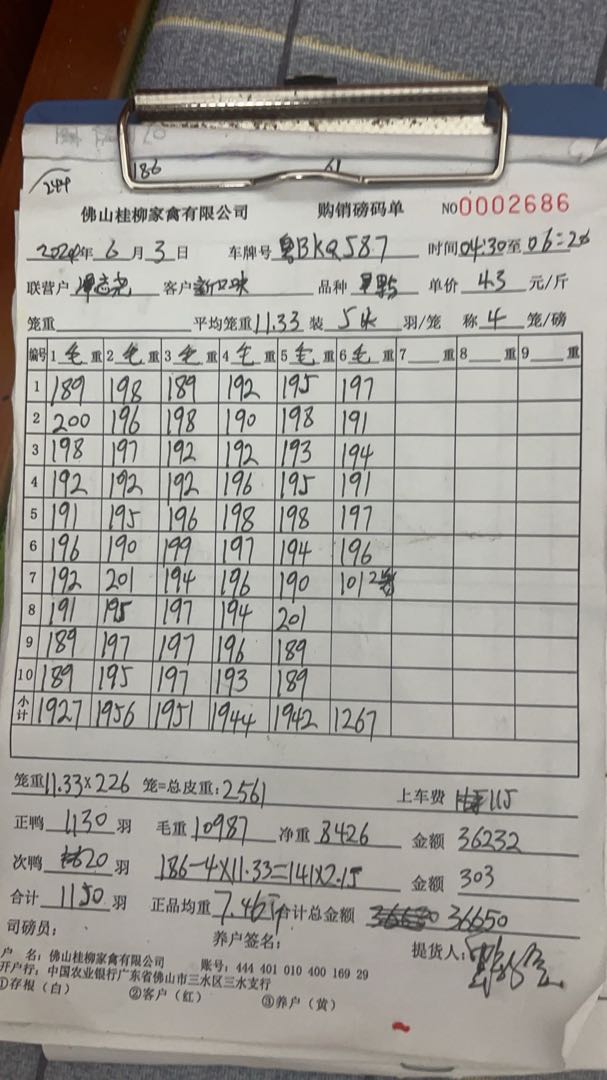 244
186 61
佛山桂柳家禽有限公司 购销磅码单 NO0002686
2020年 6 月 3 日 车牌号 粤BKQ587 时间04:30至 06:26
联营户 客户 品种 单价 4.3 元/斤
笼重 平均笼重11.33 装 5只 羽/笼 称 4 笼/磅
编号 1 毛 重 2 毛 重 3 毛 重 4 毛 重 5 毛 重 6 毛 重 7 重 8 重 9 重
1 189 198 189 192 195 197
2 200 196 198 190 198 191
3 198 197 192 192 193 194
4 192 192 192 196 195 191
5 191 195 196 198 198 197
6 196 190 199 197 194 196
7 192 201 194 196 190 101 2笼
8 191 195 197 194 201
9 189 197 197 196 189
10 189 195 197 193 189
小计 1927 1956 1951 1944 1942 1267
笼重11.33×226 笼=总皮重:2561 上车费 115
正鸭 1130 羽 毛重 10987 净重 8426 金额 36232
次鸭 20 羽 186-4×11.33=141×2.15 金额 303
合计 1150 羽 正品均重 7.46 合计总金额 36650
司磅员: 养户签名: 提货人:
户 名:佛山桂柳家禽有限公司 账号:444 401 010 400 169 29
开户行:中国农业银行广东省佛山市三水区三水支行
①存根(白) ②客户(红) ③养户(黄)